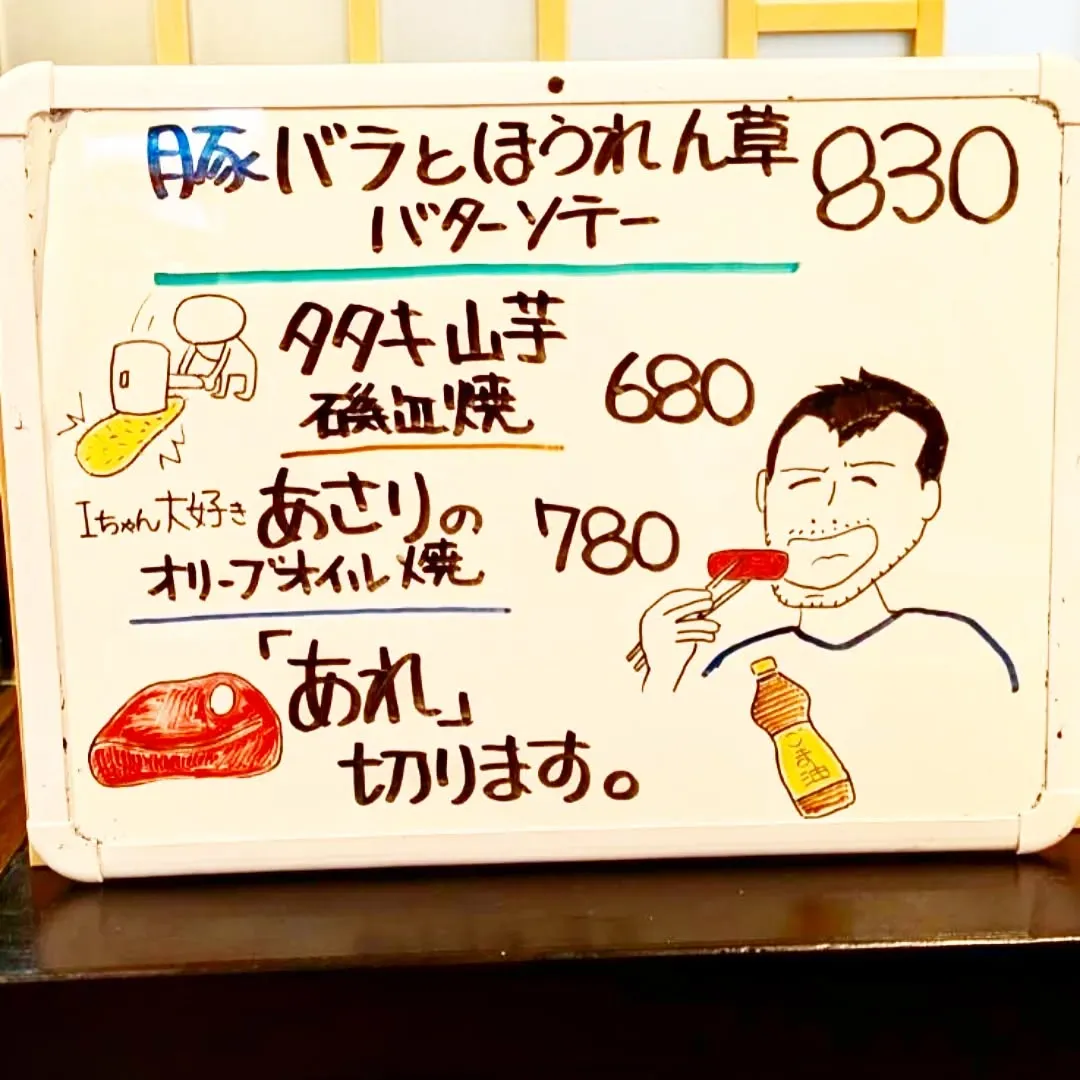 豚バラとほうれん草 830
バターソテー
タタキ山芋
磯辺焼 680
Iちゃん大好き あさりの 780
オリーブオイル焼
「あれ」
切ります。
ごま油